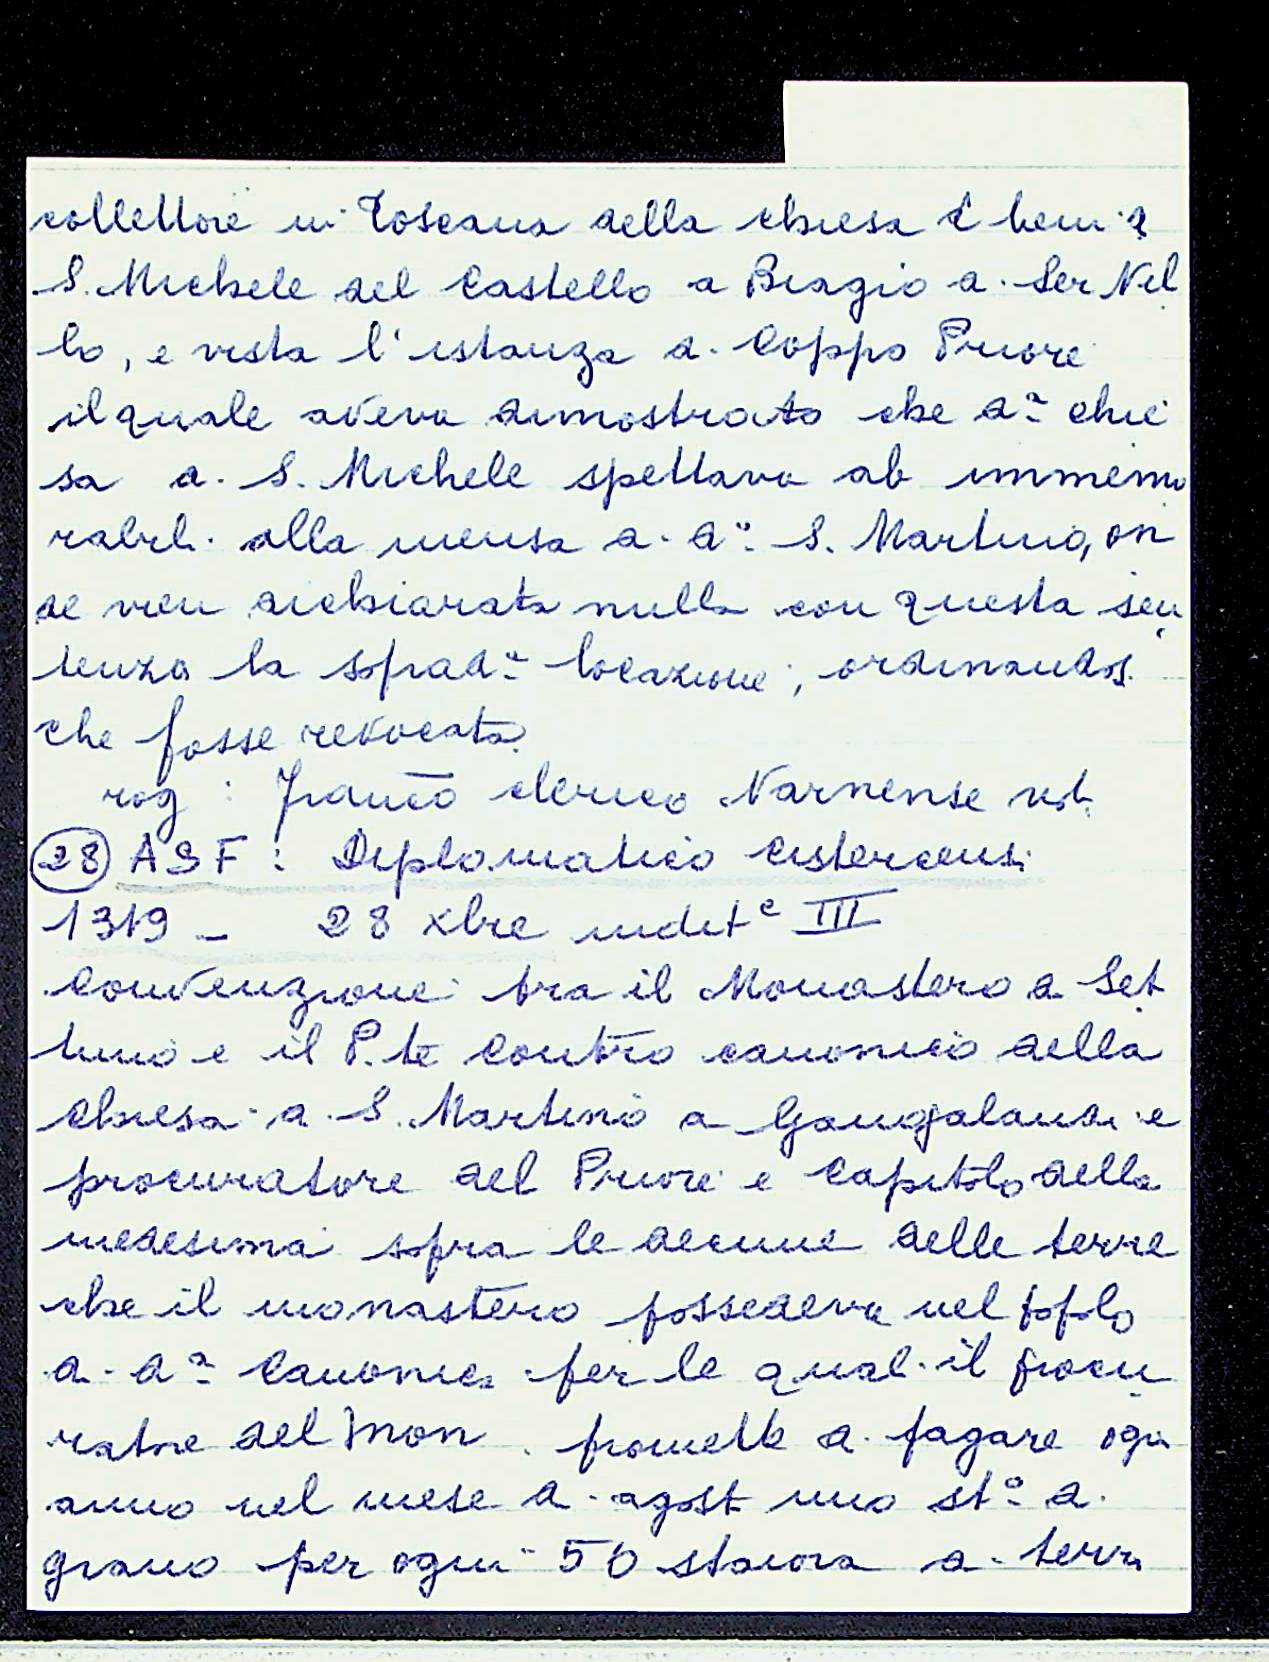 collettore in Toscana della chiesa e beni di
S. Michele del Castello a Biagio di Ser Nel
lo, e vista l'istanza di Coppo Priore
il quale aveva dimostrato che dª chie
sa di S. Michele spettava ab immemo
rabili alla mensa di dª S. Martino, on
de vien dichiarata nulla con questa sen
tenza la sopradª locazione, ordinandosi
che fosse revocata
rog: clerico Narnense not.
28 ASF: Diplomatico Cistercensi
1319 - 28 Xbre indit^e III
Convenzione tra il Monastero di Set
timo e il P.te Contro canonico della
Chiesa di S. Martino a Gangalandi e
procuratore del Priore e Capitolo della
medesima sopra le decime delle terre
che il monastero possedeva nel popolo
di dª Canonica per le quali il procu
ratore del Mon. promette di pagare ogni
anno nel mese di agosto uno stº di
grano per ogni 50 staiora di terra